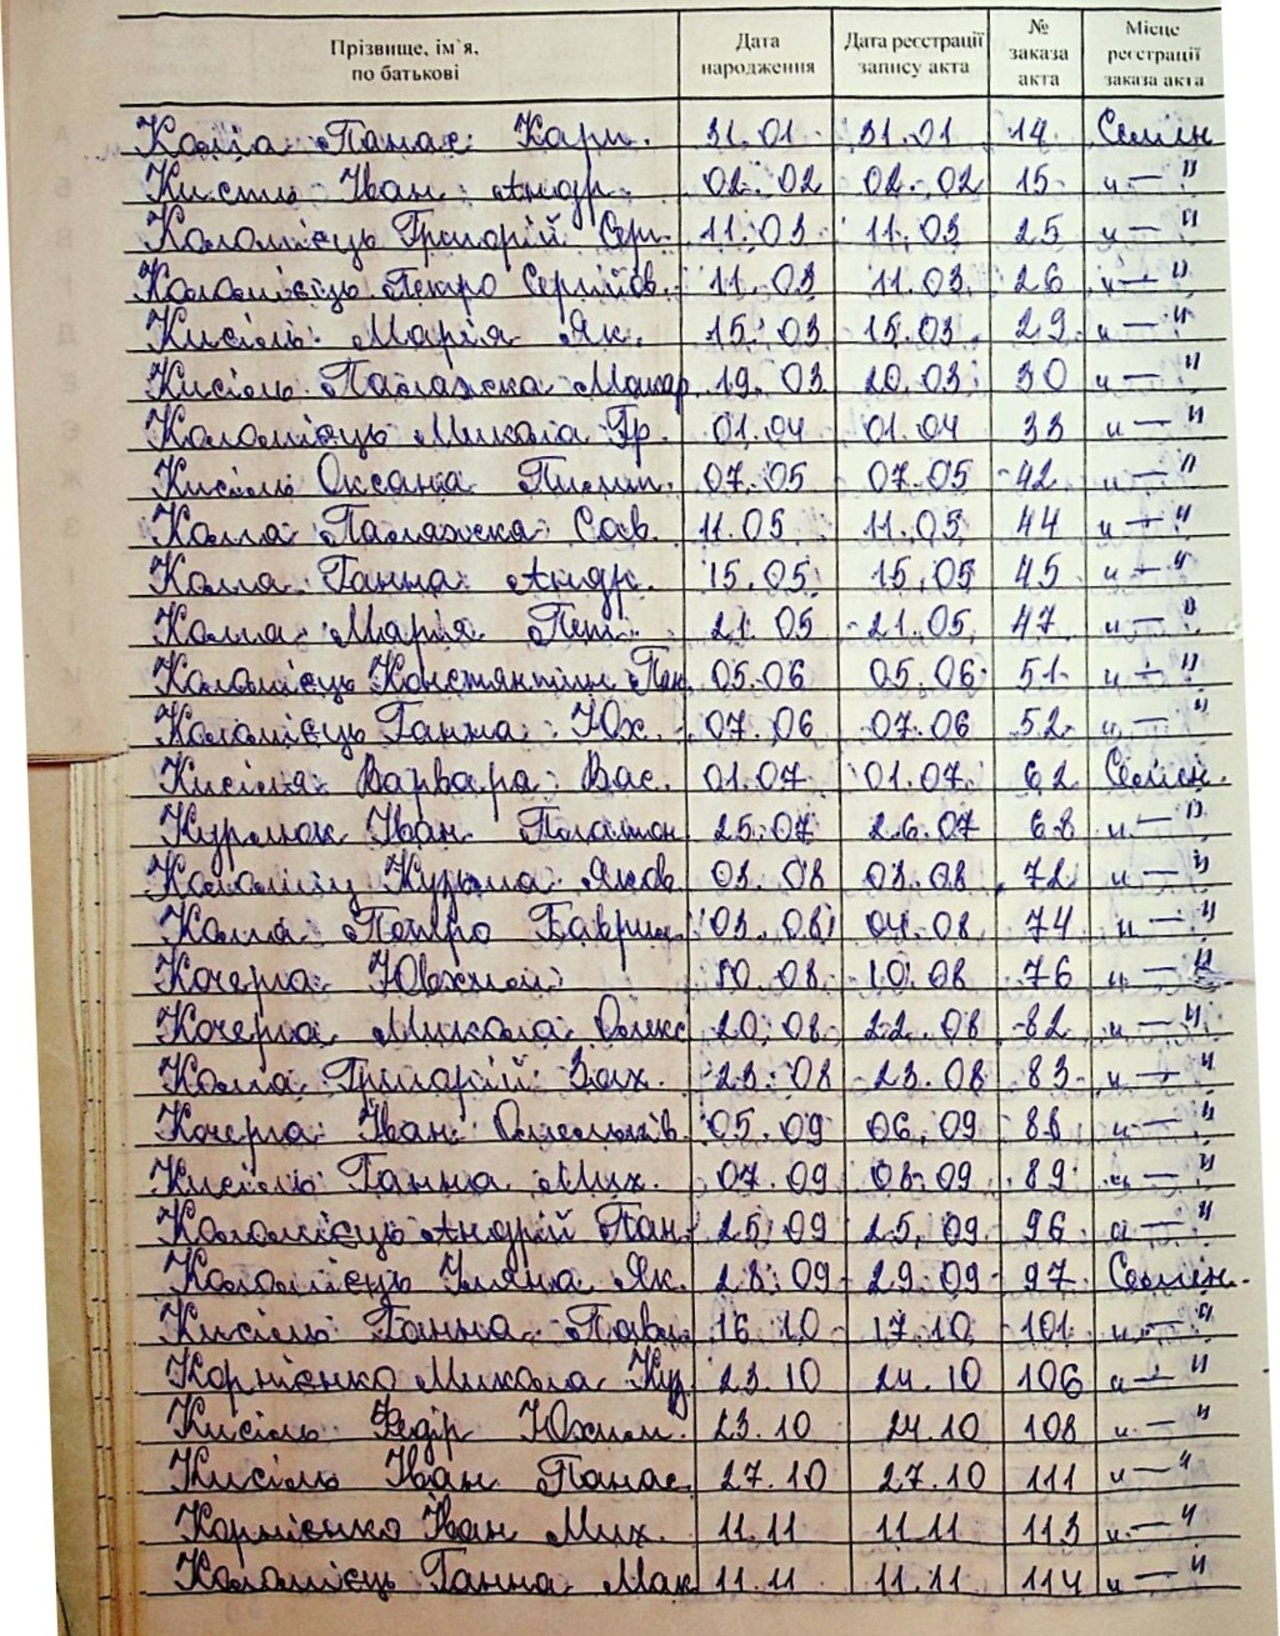 Прізвище, ім`я, по батькові | Дата народження | Дата реєстрації запису акта | № заказа акта | Місце реєстрації заказа акта
Колла Панас Карп. 31.01 31.01 14 Семен
Кисіль Іван Андр. 02.02 02.02 15 "—"
Коломієць Григорій Сер. 11.03 11.03 25 "—"
Коломієць Петро Сергійов. 11.03 11.03 26 "—"
Кисіль Марія Як. 15.03 15.03 29 "—"
Кисіль Палажка Макар 19.03 20.03 30 "—"
Коломієць Микола Гр. 01.04 01.04 33 "—"
Кисіль Оксана Пилип. 07.05 07.05 42 "—"
Колла Палажка Сав. 11.05 11.05 44 "—"
Колла Ганна Андр. 15.05 15.05 45 "—"
Колла Марія Пет. 21.05 21.05 47 "—"
Коломієць Констянтин Пан 05.06 05.06 51 "—"
Коломієць Ганна Юх. 07.06 07.06 52 "—"
Кисіля Варвара Вас. 01.07 01.07 62 Семен.
Іван Платон 25.07 26.07 68 "—"
Коломієц Кузьма Яков 03.08 03.08 72 "—"
Колла Петро Гаврил. 03.08 04.08 74 "—"
Кочерга 10.08 10.08 76 "—"
Кочерга Микола Олекс 20.08 22.08 82 "—"
Колла Григорій Зах. 23.08 23.08 83 "—"
Кочерга Іван Омельків. 05.09 06.09 88 "—"
Кисіль Ганна Мих. 07.09 08.09 89 "—"
Коломієць Андрій Пан. 25.09 25.09 96 "—"
Коломієць Уляна Як. 28.09 29.09 97 Семен.
Кисіль Ганна Павл. 16.10 17.10 101 "—"
Корнієнко Микола Куз 23.10 24.10 106 "—"
Кисіль Федір Юхим. 23.10 24.10 108 "—"
Кисіль Іван Панас. 27.10 27.10 111 "—"
Корнієнко Іван Мих. 11.11 11.11 113 "—"
Коломієць Ганна Мак 11.11 11.11 114 "—"